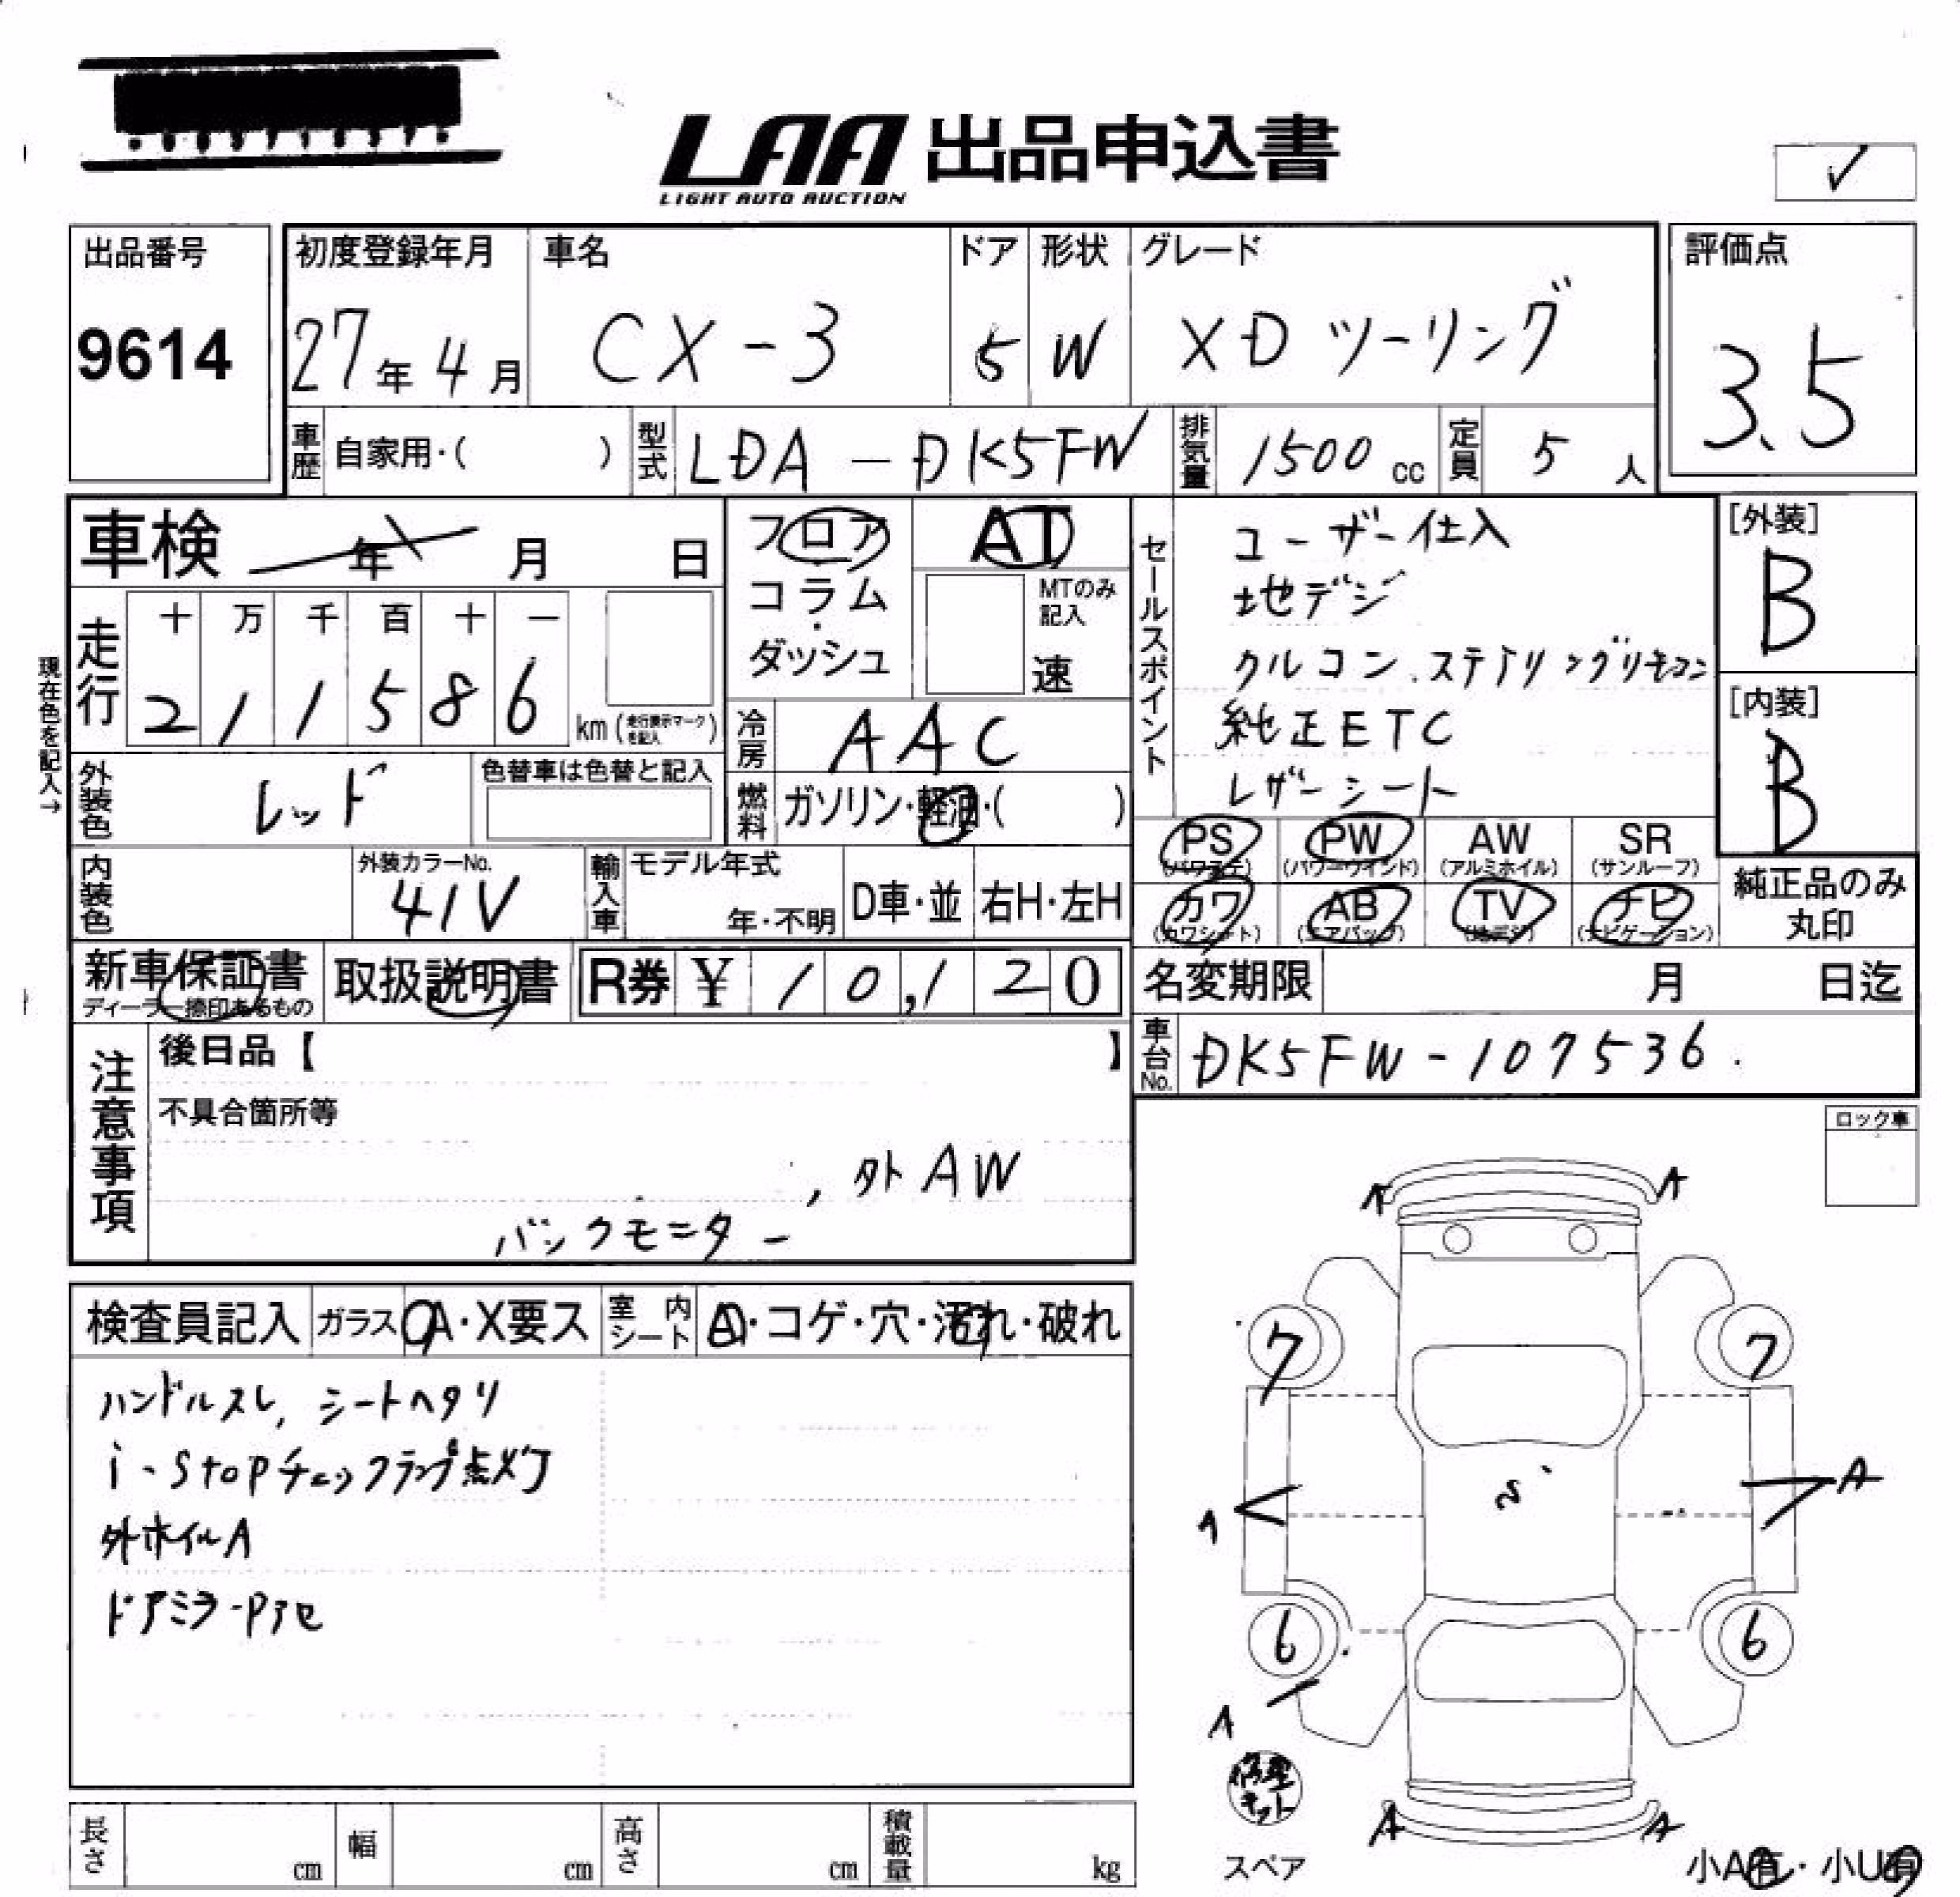 LAA 出品申込書
LIGHT AUTO AUCTION
✓
出品番号
9614
初度登録年月
27年4月
車名
CX-3
ドア
5
形状
W
グレード
XD ツーリング
評価点
3.5
車歴 自家用・( )
型式 LDA-DK5FW
排気量 1500 cc
定員 5 人
車検 年 月 日
フロア・コラム・ダッシュ
AT
MTのみ記入
速
セールスポイント
ユーザー仕入
地デジ
クルコン、ステアリングリモコン
純正ETC
レザーシート
[外装]
B
[内装]
B
現在色を記入→
走行
十 万 千 百 十 一
2 1 1 5 8 6 km (走行表示マークを記入)
冷房 AAC
外装色 レッド
色替車は色替と記入
燃料 ガソリン・軽油・( )
PS (パワステ)
PW (パワーウインド)
AW (アルミホイル)
SR (サンルーフ)
カワ (カワシート)
AB (エアバッグ)
TV (地デジ)
ナビ (ナビゲーション)
純正品のみ丸印
内装色
外装カラーNo.
41V
輸入車
モデル年式
年・不明
D車・並
右H・左H
新車保証書
ディーラー捺印あるもの
取扱説明書
R券 ¥ 10,120
名変期限 月 日迄
車台No. DK5FW-107536
注意事項
後日品【 】
不具合箇所等
, 外AW
バックモニター
ロック車
検査員記入
ガラス A・X要ス
室内シート A・コゲ・穴・汚れ・破れ
ハンドルスレ, シートヘタリ
i-stopチェックランプ点灯
外ホイルA
ドアミラーPアセ
A A
7 7
A A
6 6
A
修理キット
A A
スペア
小A有・小U有
長さ cm
幅 cm
高さ cm
積載量 kg